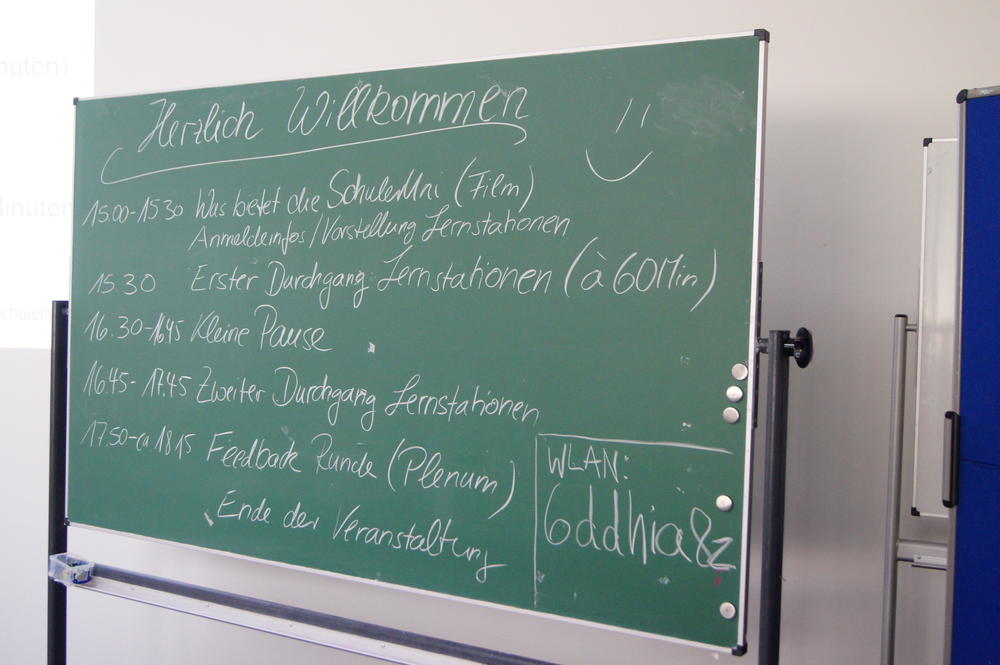 Herzlich Willkommen
15.00-15 30 Was bietet die SchulerUni (Film)
Anmeldeinfos/Vorstellung Lernstationen
15.30 Erster Durchgang Lernstationen (à 60Min)
16.30-1645 Kleine Pause
16.45-17.45 Zweiter Durchgang Lernstationen
17.50-ca 18 15 Feedback Runde (Plenum)
Ende der Veranstaltung
WLAN:
6ddhia8z
nuten)
Minuten